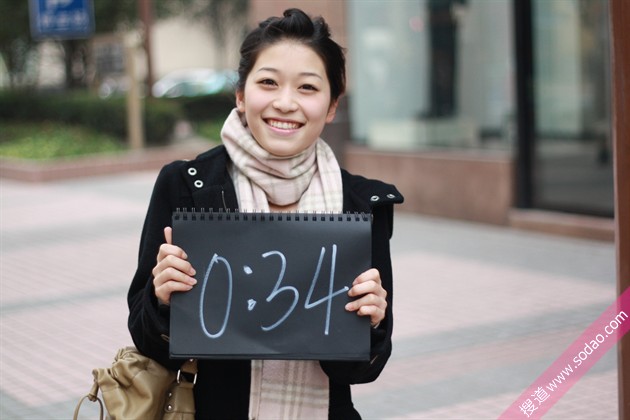 0:34
搜道www.sodao.com